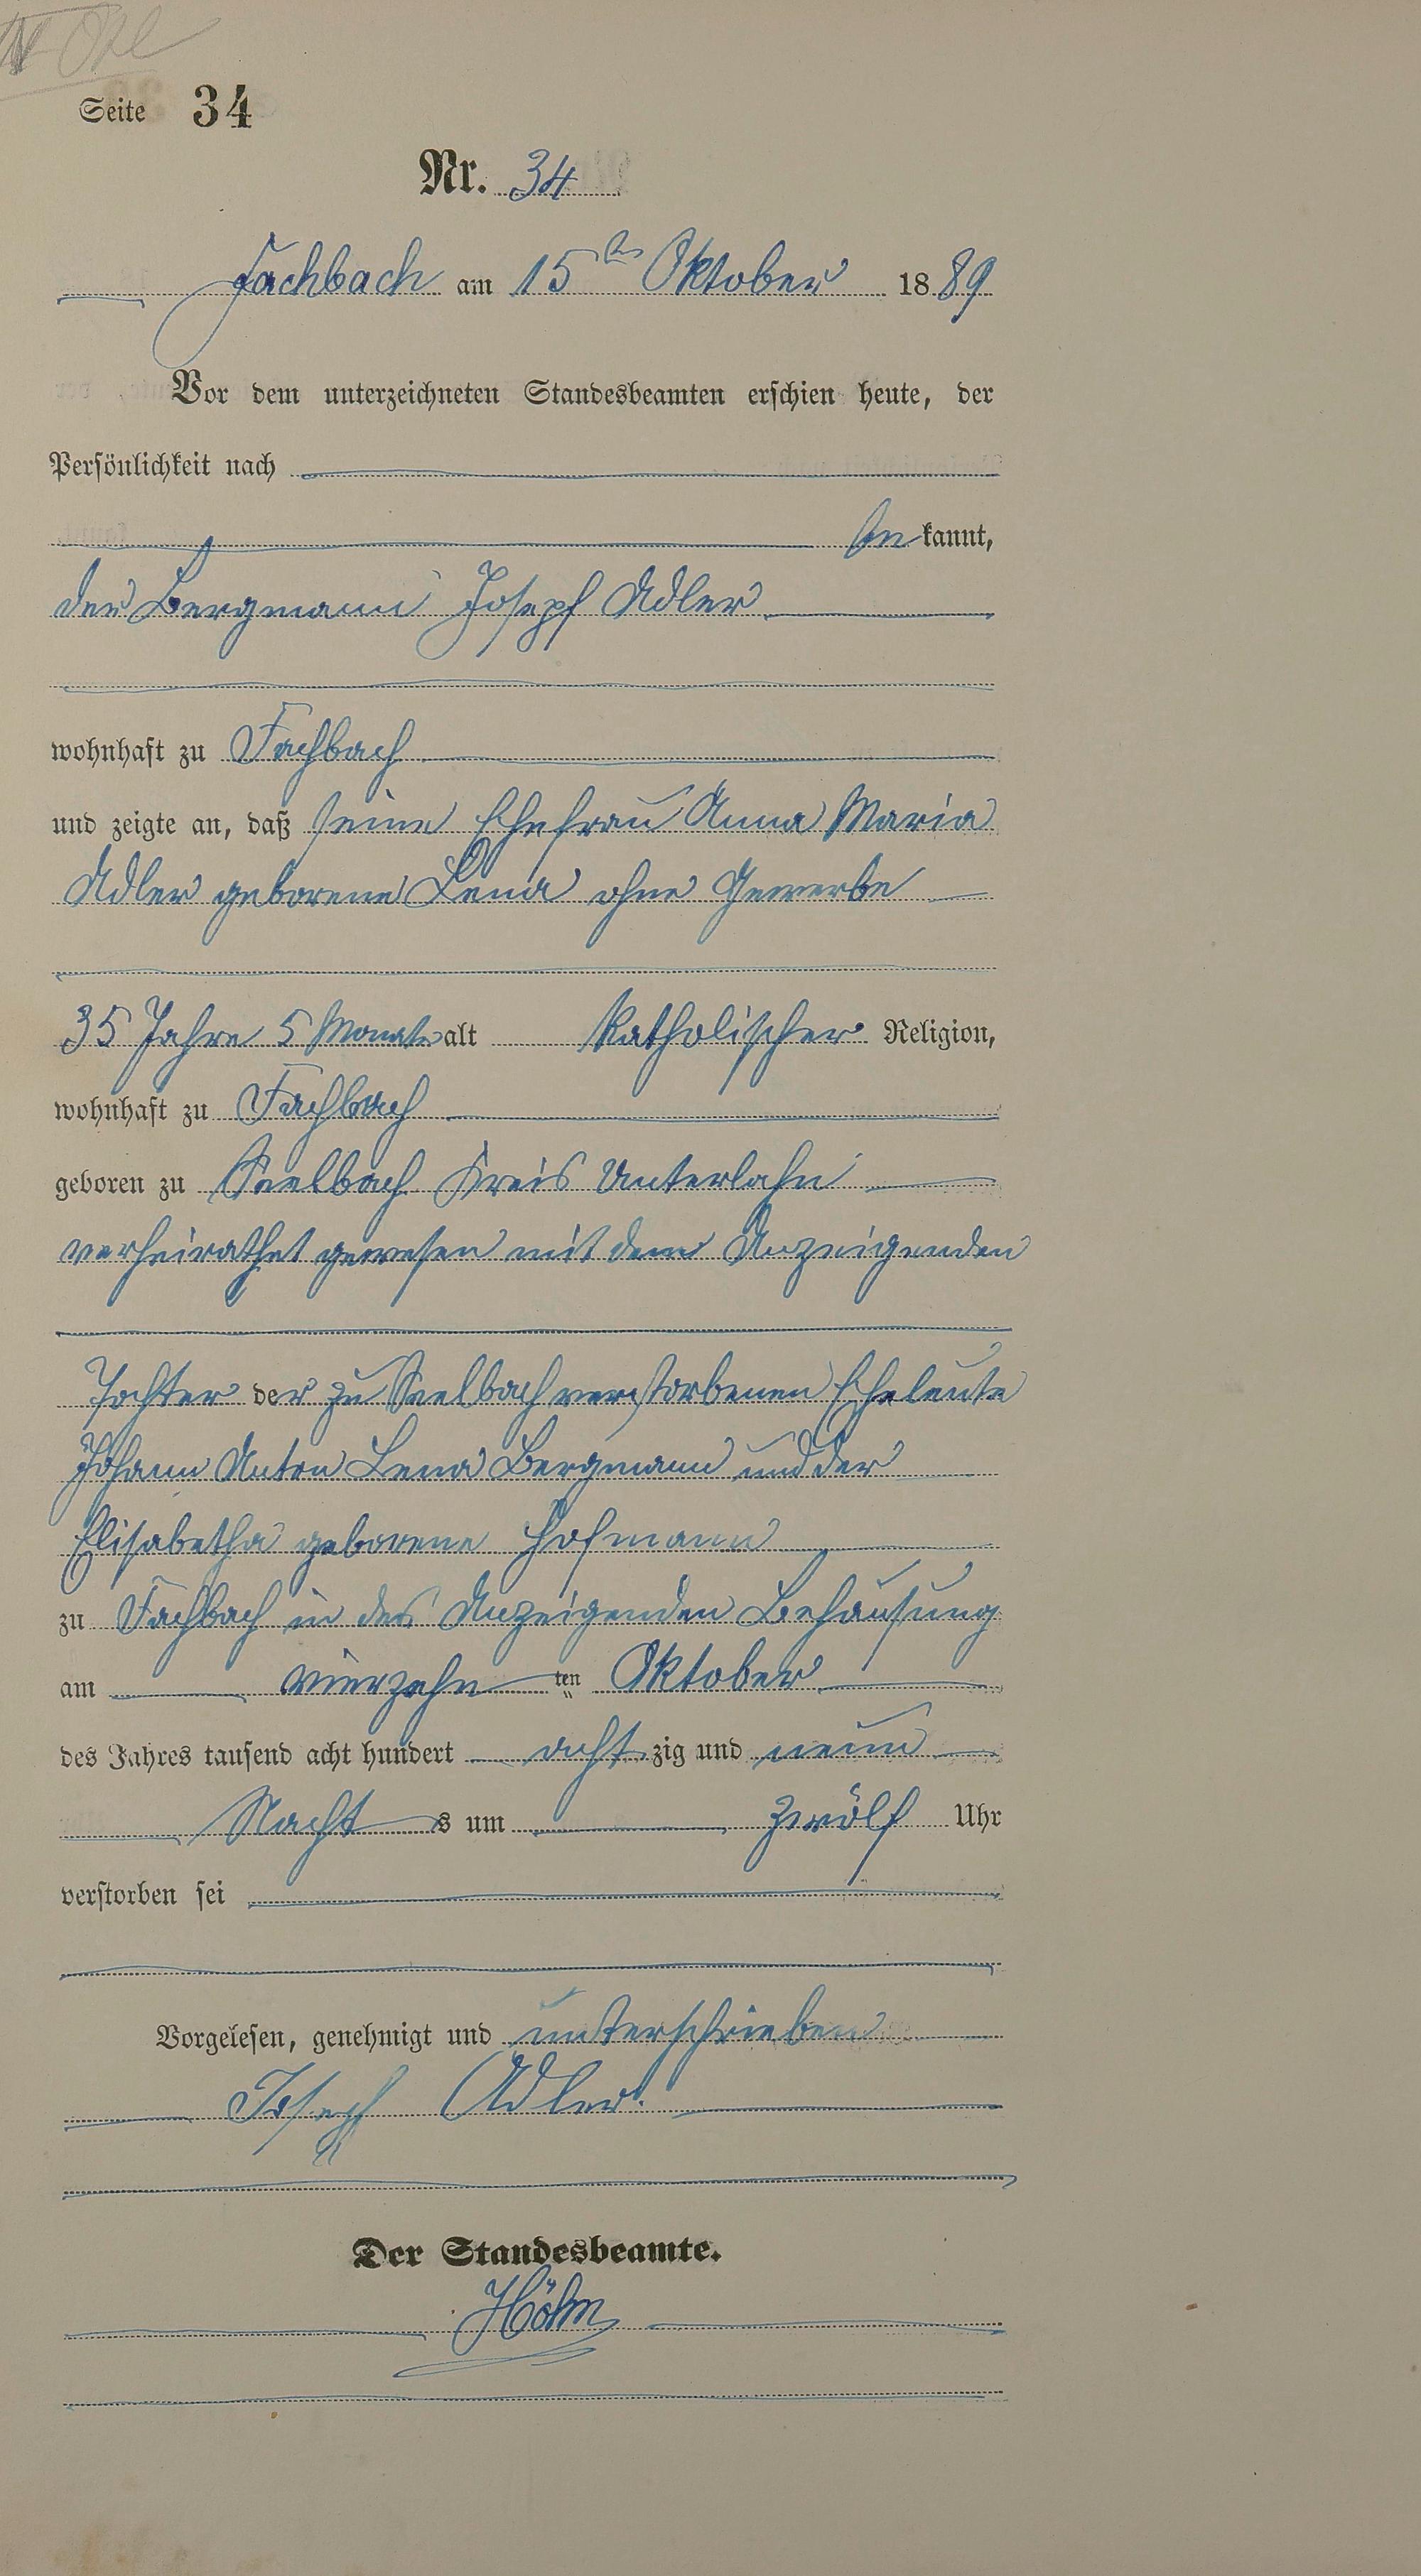 Seite 34
Nr. 34
Fachbach am 15ten Oktober 1889
Vor dem unterzeichneten Standesbeamten erschien heute, der
Persönlichkeit nach
bekannt,
der Bergmann Joseph Adler
wohnhaft zu Fachbach
und zeigte an, daß seine Ehefrau Anna Maria
Adler geborene Lena ohne Gewerbe
35 Jahre 5 Monate alt katholischer Religion,
wohnhaft zu Fachbach
geboren zu Seelbach Kreis Unterlahn
verheirathet gewesen mit dem Anzeigenden
Tochter der zu Seelbach verstorbenen Eheleute
Johann Anton Lena Bergmann und der
Elisabetha geborene Hofmann
zu Fachbach in des Anzeigenden Behausung
am vierzehnten Oktober
des Jahres tausend acht hundert achtzig und neun
Nachts um zwölf Uhr
verstorben sei
Vorgelesen, genehmigt und unterschrieben
Joseph Adler.
Der Standesbeamte.
Höhn